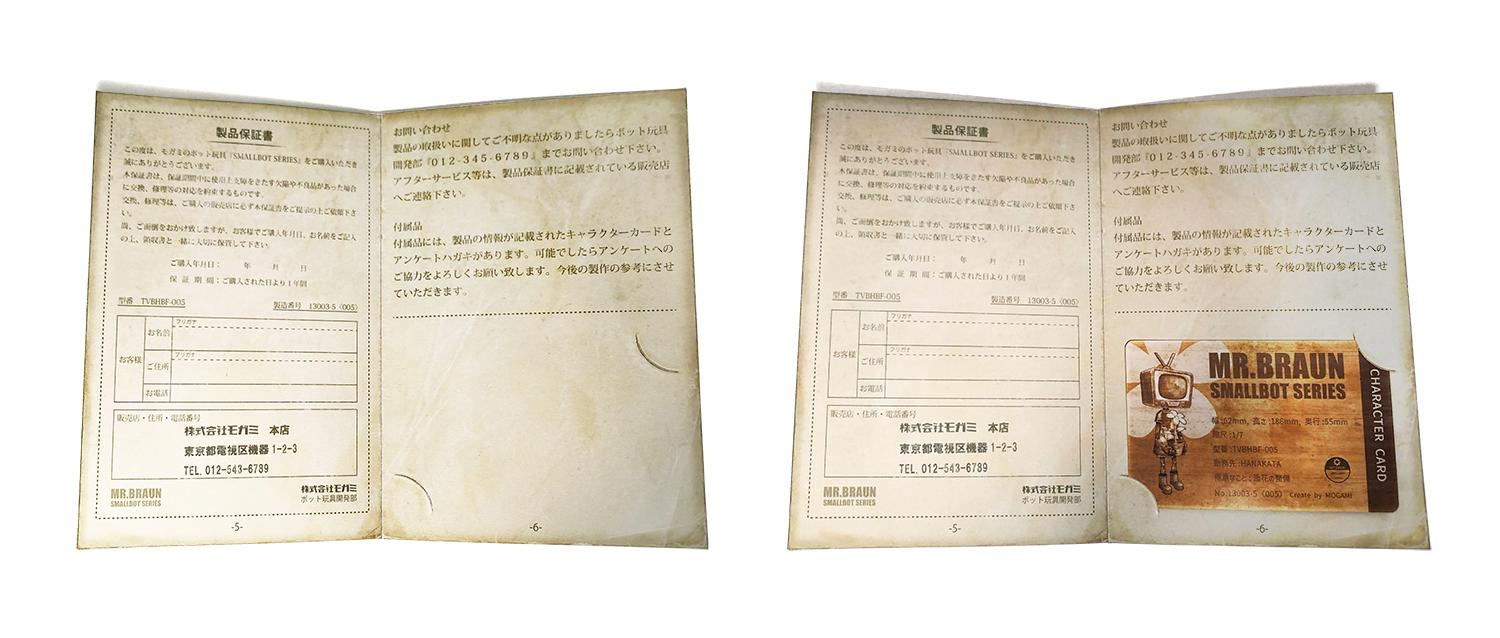 製品保証書
この度は、モガミのボット玩具「SMALLBOT SERIES」をご購入いただき
誠にありがとうございます。
本保証書は、保証期間中に使用上支障をきたす欠陥や不良品があった場合
に交換、修理等の対応を約束するものです。
交換、修理等は、ご購入の販売店に必ず本保証書をご提示の上ご依頼下さ
い。
尚、ご面倒をおかけ致しますが、お客様でご購入年月日、お名前をご記入
の上、領収書と一緒に大切に保管して下さい。
ご購入年月日： 年 月 日
保 証 期 間：ご購入された日より1年間
型番 TVBHBF-005 製造番号 13003-5〈005〉
お客様
お名前 フリガナ
ご住所 フリガナ
お電話
販売店・住所・電話番号
株式会社モガミ 本店
東京都電視区機器 1-2-3
TEL. 012-543-6789
MR.BRAUN
SMALLBOT SERIES
株式会社モガミ
ボット玩具開発部
-5-
お問い合わせ
製品の取扱いに関してご不明な点がありましたらボット玩具
開発部『012-345-6789』までお問い合わせ下さい。
アフターサービス等は、製品保証書に記載されている販売店
へご連絡下さい。
付属品
付属品には、製品の情報が記載されたキャラクターカードと
アンケートハガキがあります。可能でしたらアンケートへの
ご協力をよろしくお願い致します。今後の製作の参考にさせ
ていただきます。
-6-
製品保証書
この度は、モガミのボット玩具「SMALLBOT SERIES」をご購入いただき
誠にありがとうございます。
本保証書は、保証期間中に使用上支障をきたす欠陥や不良品があった場合
に交換、修理等の対応を約束するものです。
交換、修理等は、ご購入の販売店に必ず本保証書をご提示の上ご依頼下さ
い。
尚、ご面倒をおかけ致しますが、お客様でご購入年月日、お名前をご記入
の上、領収書と一緒に大切に保管して下さい。
ご購入年月日： 年 月 日
保 証 期 間：ご購入された日より1年間
型番 TVBHBF-005 製造番号 13003-5〈005〉
お客様
お名前 フリガナ
ご住所 フリガナ
お電話
販売店・住所・電話番号
株式会社モガミ 本店
東京都電視区機器 1-2-3
TEL. 012-543-6789
MR.BRAUN
SMALLBOT SERIES
株式会社モガミ
ボット玩具開発部
-5-
お問い合わせ
製品の取扱いに関してご不明な点がありましたらボット玩具
開発部『012-345-6789』までお問い合わせ下さい。
アフターサービス等は、製品保証書に記載されている販売店
へご連絡下さい。
付属品
付属品には、製品の情報が記載されたキャラクターカードと
アンケートハガキがあります。可能でしたらアンケートへの
ご協力をよろしくお願い致します。今後の製作の参考にさせ
ていただきます。
MR.BRAUN
SMALLBOT SERIES
幅:62mm, 高さ:186mm, 奥行:55mm
縮尺:1/7
型番:TVBHBF-005
勤務先:HANAKATA
得意なこと:造花の整備
No.13003-5〈005〉 Create by MOGAMI
CHARACTER CARD
-6-